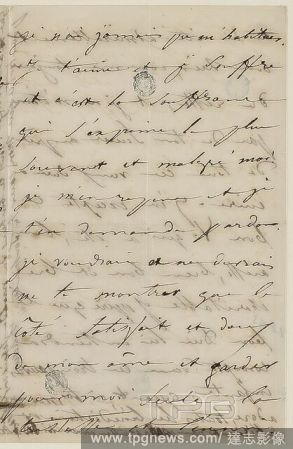 je n'ai jamais pu m'habituer.
Je t'aime et je souffre
et c'est la souffrance
qui s'exprime le plus
souvent et malgré moi
je m'en repens et je
t'en demande pardon.
je voudrais et ne devrais
ne te montrer que le
côté satisfait et doux
de mon âme et garder
pour moi seule la
TPG
www.tpgnews.com 達志影像